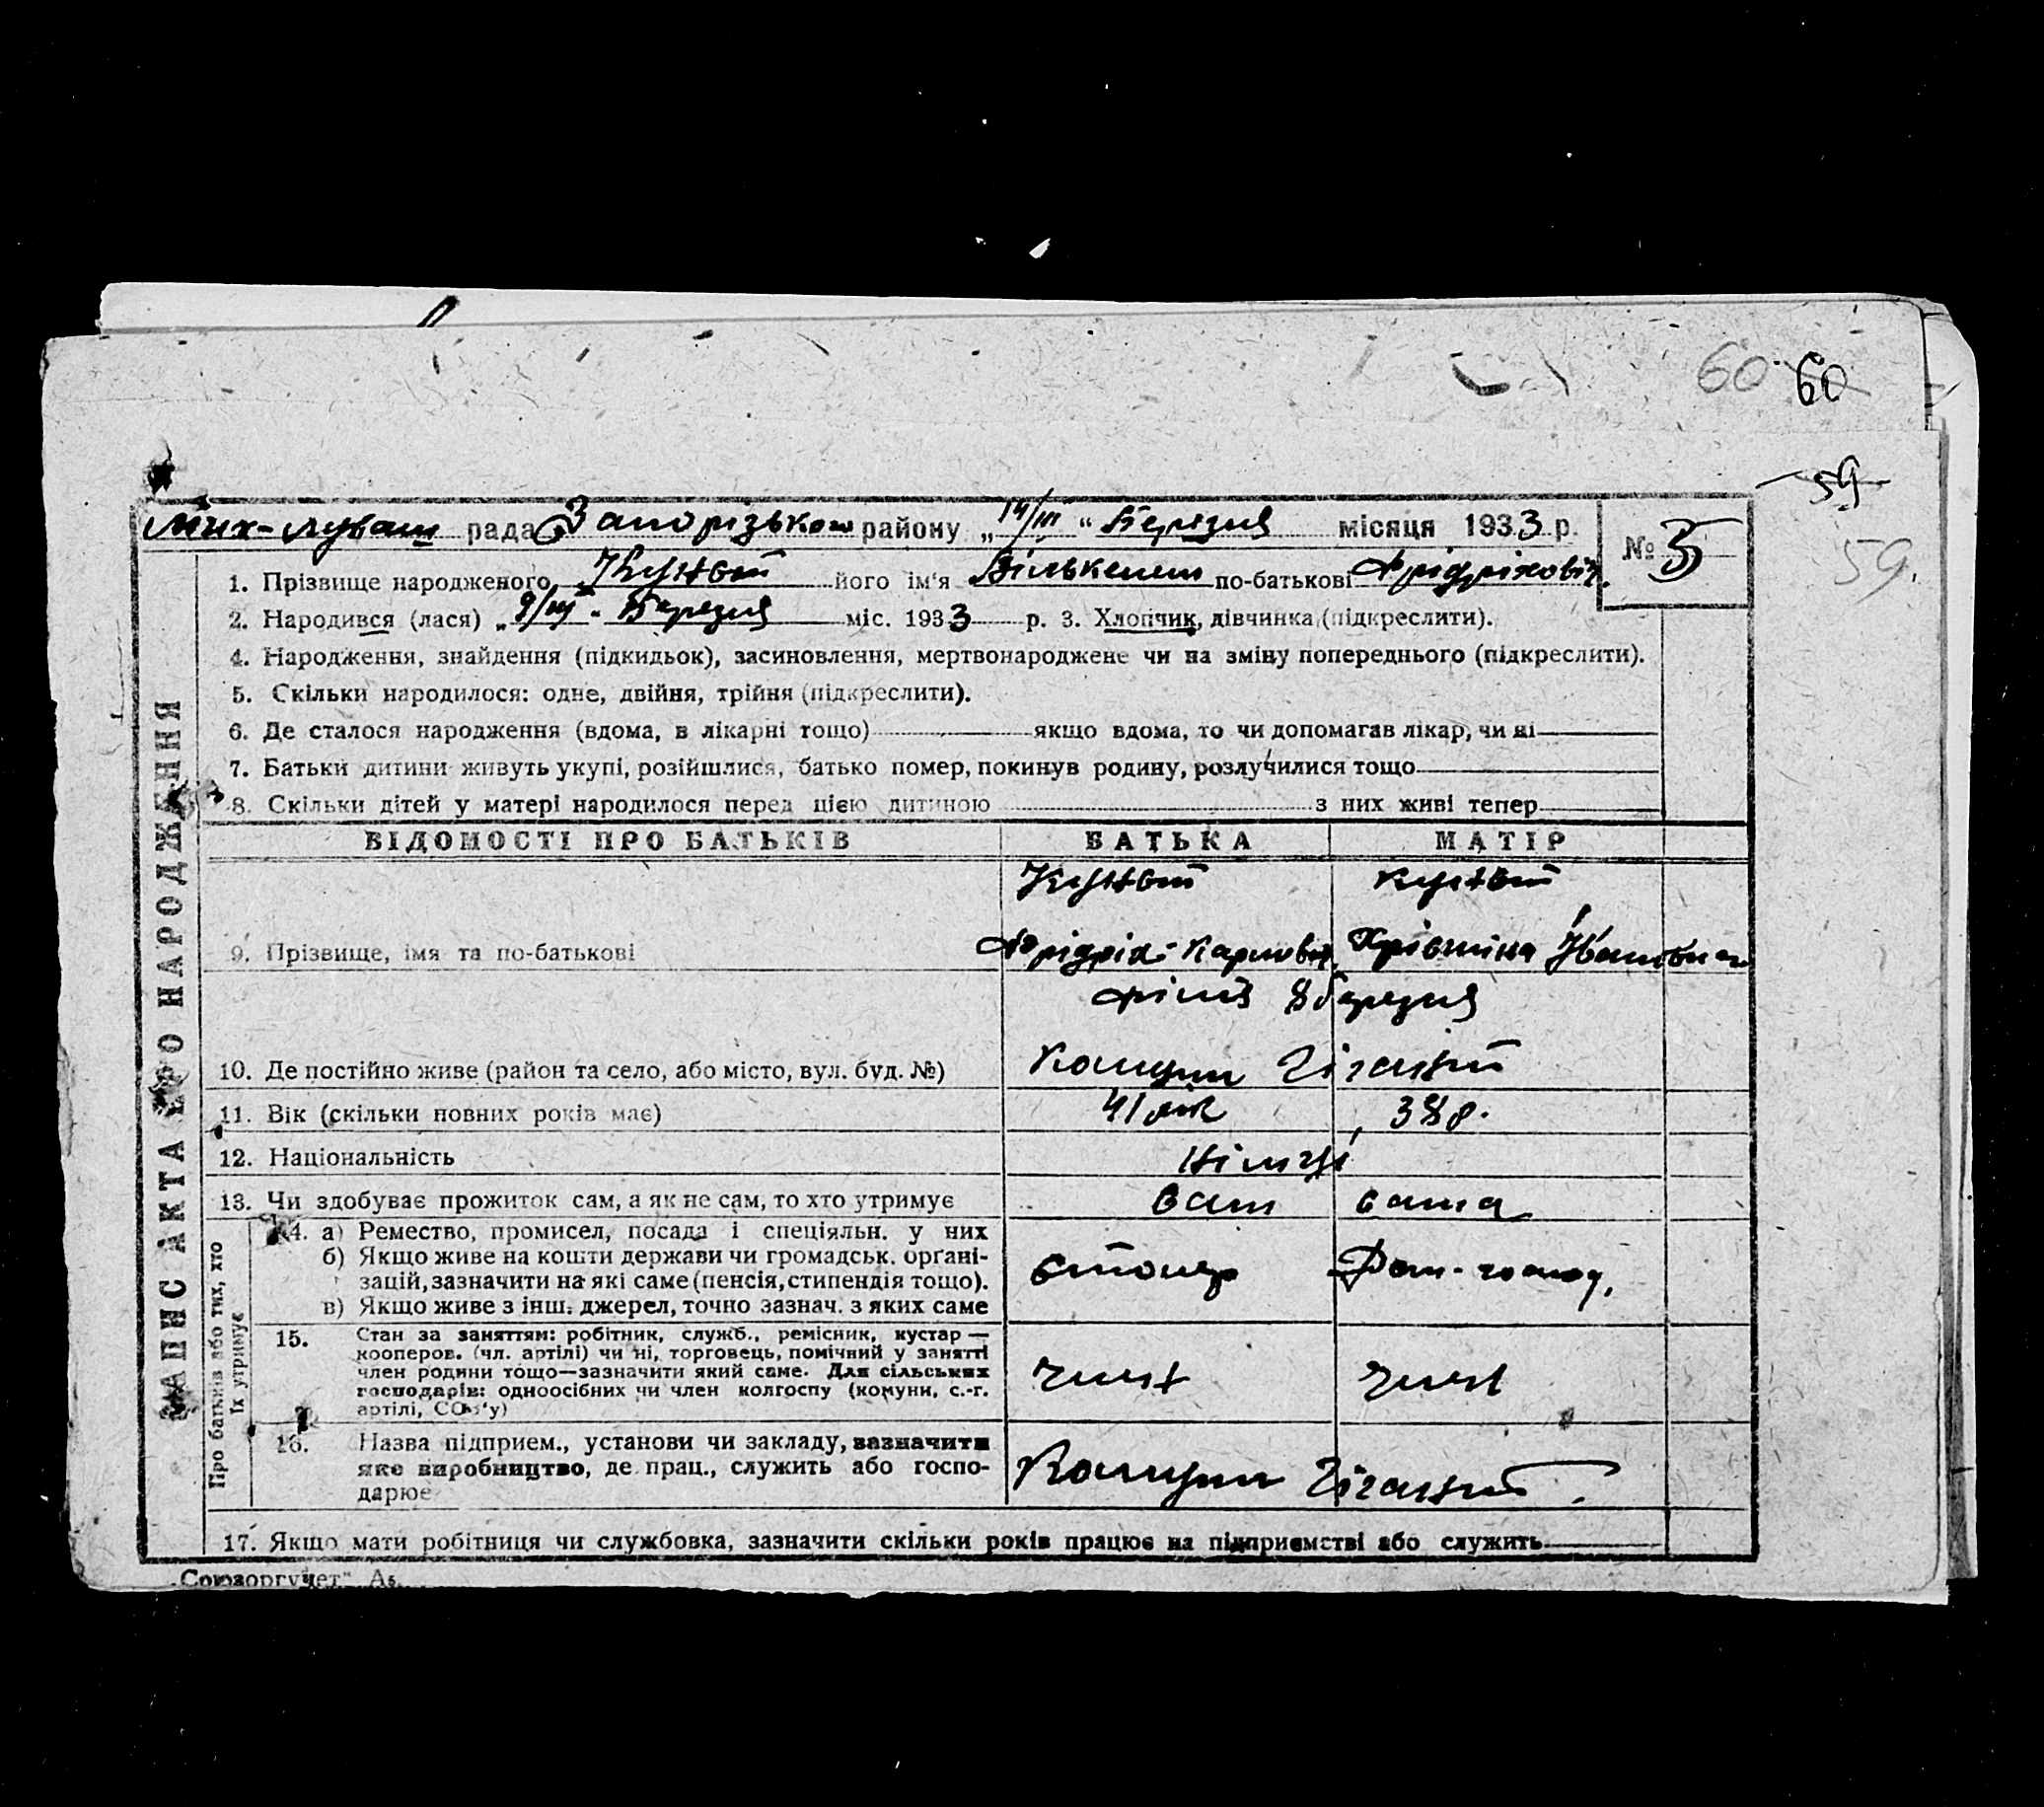 60 60
59
Мих-Лукаш рада Запорізького району „14/III“ Березня місяця 1933 р. № 5
59.
1. Прізвище народженого його ім'я Вількельм по-батькові Фрідріхович.
2. Народився (лася) „9/III“ Березня міс. 1933 р. 3. Хлопчик, дівчинка (підкреслити).
4. Народження, знайдення (підкидьок), засиновлення, мертвонароджене чи на зміну попереднього (підкреслити).
5. Скільки народилося: одне, двійня, трійня (підкреслити).
6. Де сталося народження (вдома, в лікарні тощо) якщо вдома, то чи допомагав лікар, чи ні
7. Батьки дитини живуть укупі, розійшлися, батько помер, покинув родину, розлучилися тощо
8. Скільки дітей у матері народилося перед цією дитиною з них живі тепер
ЗАПИС АКТА ПРО НАРОДЖЕННЯ
ВІДОМОСТІ ПРО БАТЬКІВ БАТЬКА МАТІР
9. Прізвище, імя та по-батькові Фрідріх Карлович Хрістіна Іванівна
8 березня
10. Де постійно живе (район та село, або місто, вул. буд. №) Гігант
11. Вік (скільки повних років має) 41 рік 38 р.
12. Національність німці
13. Чи здобуває прожиток сам, а як не сам, то хто утримує сам сама
Про батьків або тих, хто
їх утримує
14. а) Ремество, промисел, посада і спеціяльн. у них
б) Якщо живе на кошти держави чи громадськ. органі-
зацій, зазначити на які саме (пенсія, стипендія тощо). столяр Дом-господ.
в) Якщо живе з інш. джерел, точно зазнач. з яких саме
15. Стан за заняттям: робітник, служб., ремісник, кустар —
кооперов. (чл. артілі) чи ні, торговець, помічний у занятті
член родини тощо—зазначити який саме. Для сільських
господарів: одноосібних чи член колгоспу (комуни, с.-г.
артілі, СОЗ'у) член член
16. Назва підприєм., установи чи закладу, зазначити
яке виробництво, де прац., служить або госпо-
дарює Гігант.
17. Якщо мати робітниця чи службовка, зазначити скільки років працює на підприємстві або служить
„Союзоргучет“